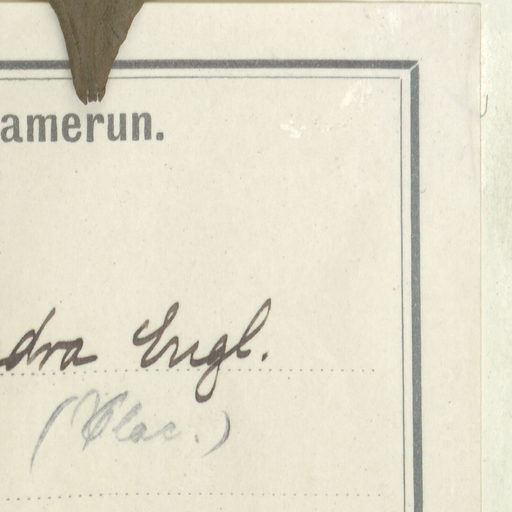 amerun.
dra Engl.
(Olac.)